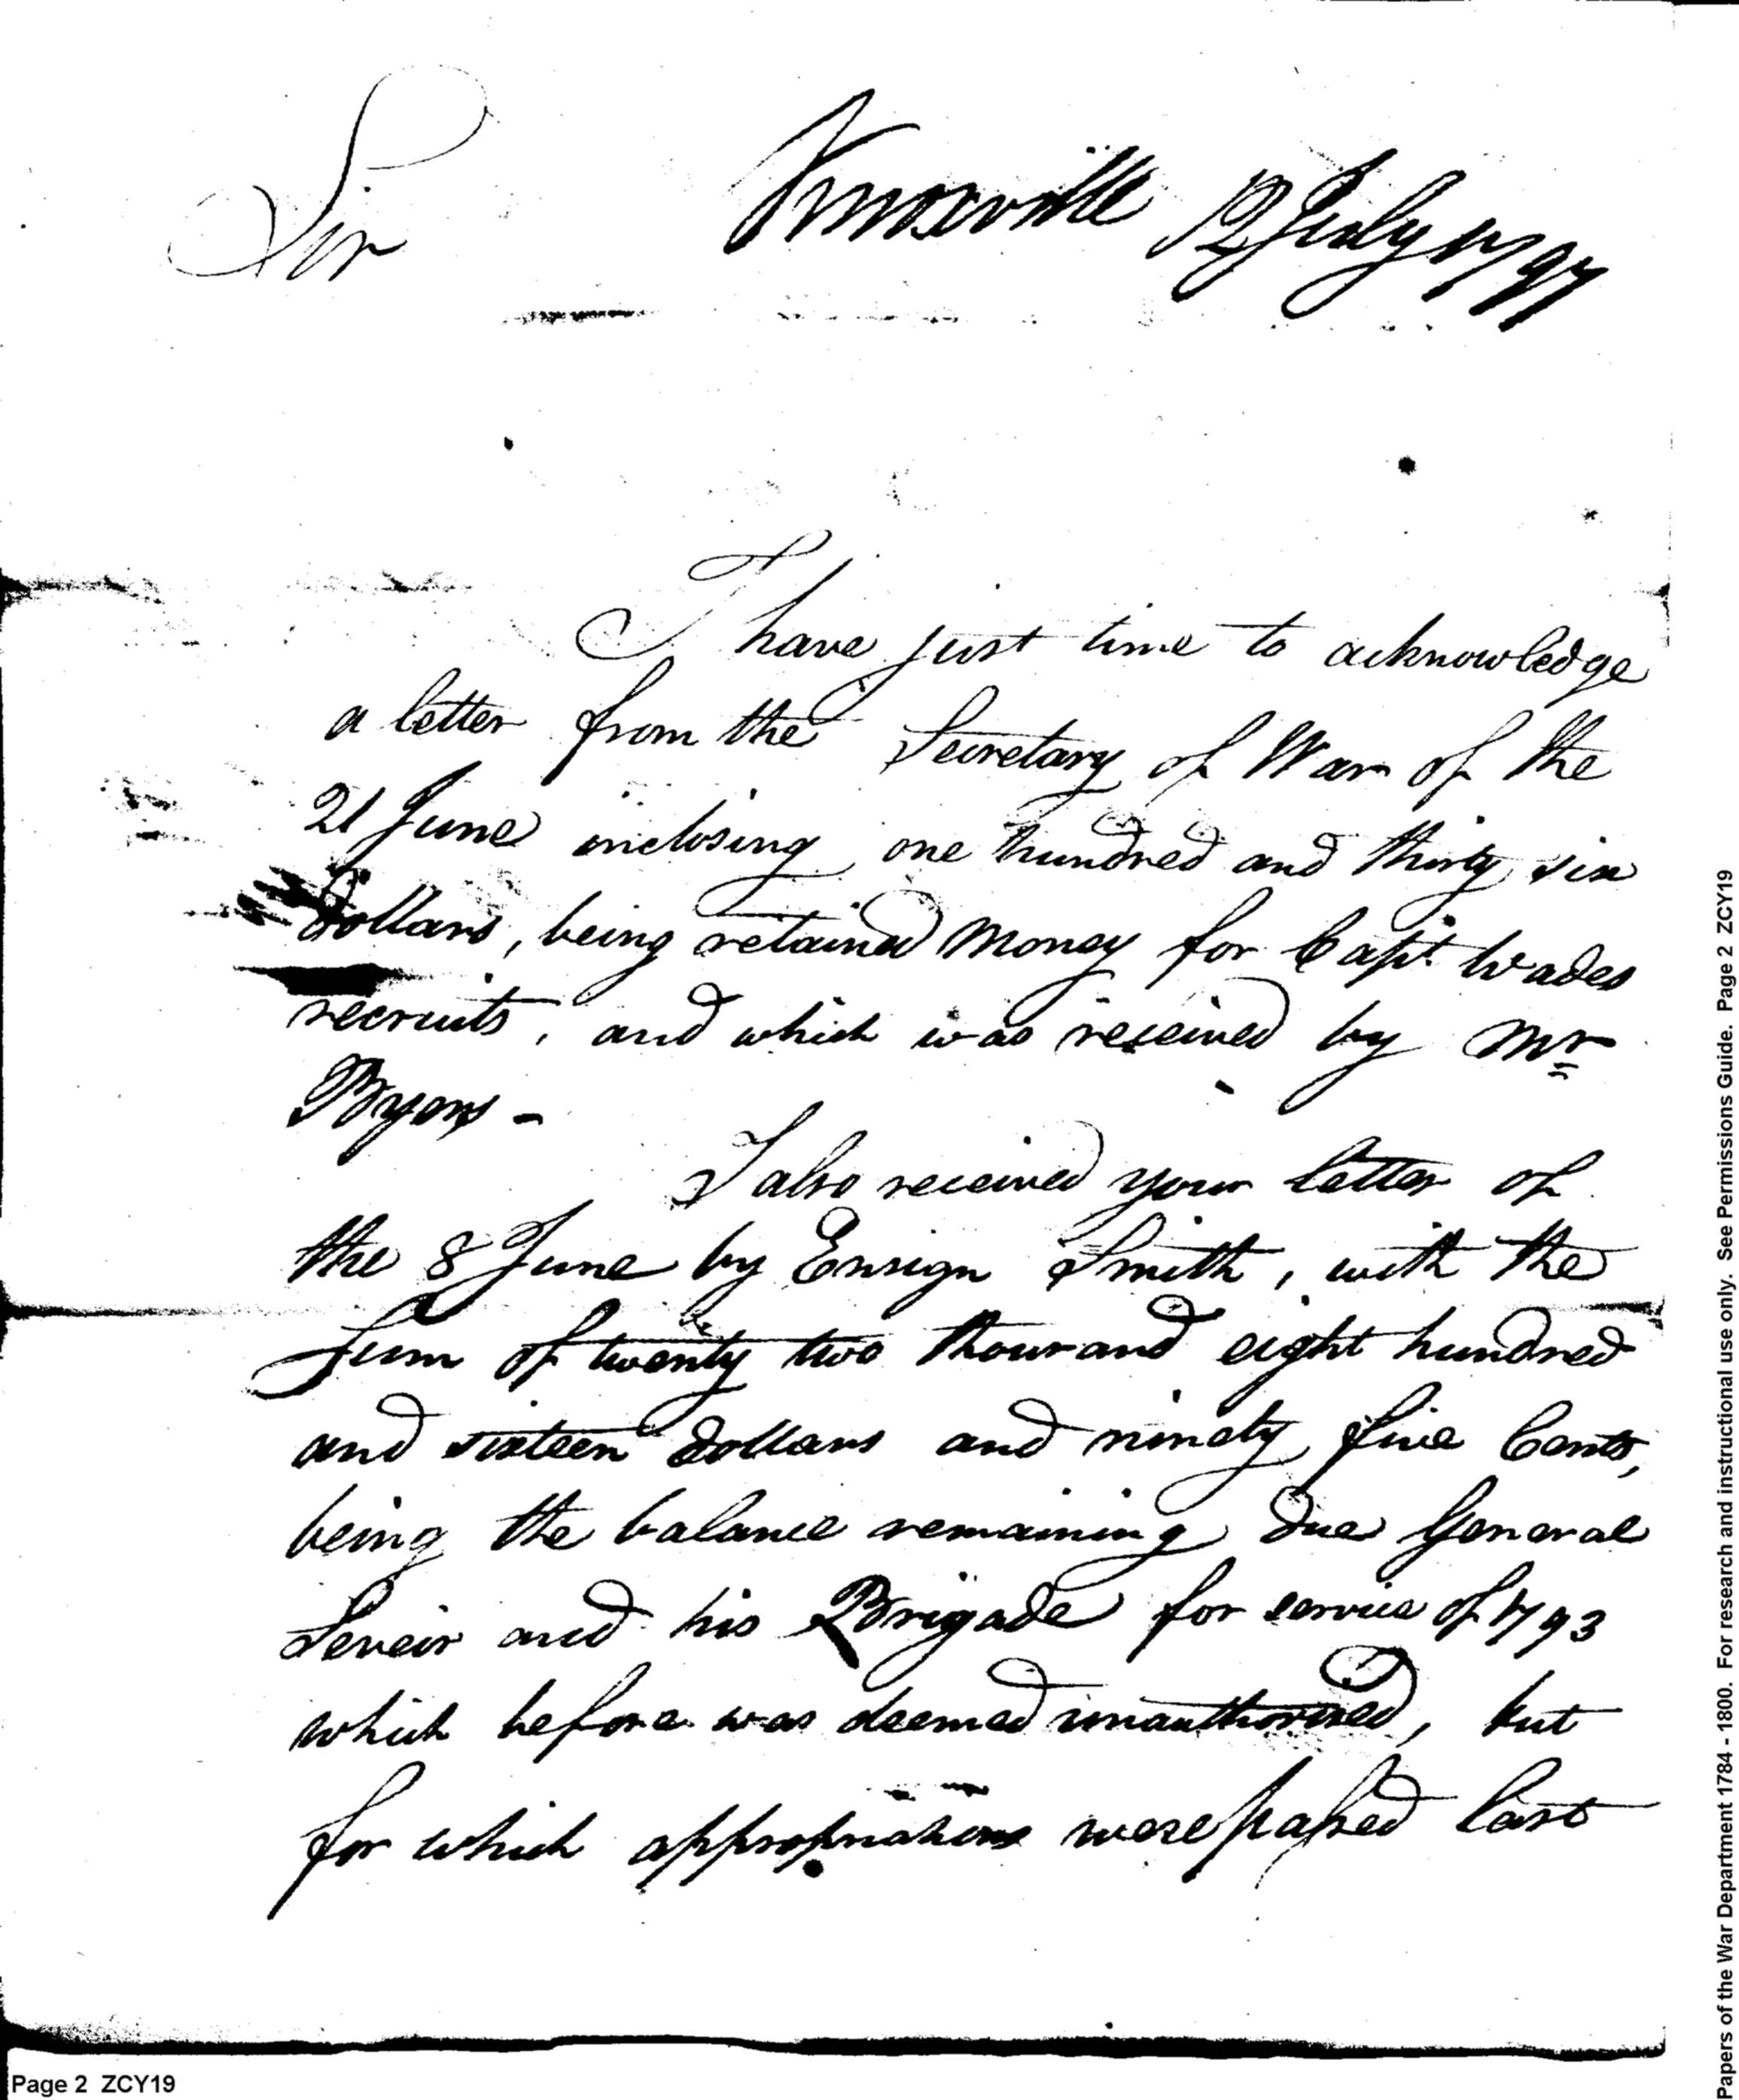 Sir
Knoxville 12 July 1797
I have just time to acknowledge
a letter from the Secretary of War of the
21 June inclosing one hundred and thirty six
dollars, being retained money for Capt Wades
recruits, and which was received by Mr
Byers -
I also received your letter of
the 8 June by Ensign Smith, with the
Sum of twenty two thousand eight hundred
and sixteen dollars and ninety five Cents,
being the balance remaining due General
Seveir and his Brigade for service of 1793
which before was deemed unauthorised, but
for which appropriations were passed last
Page 2 ZCY19
Papers of the War Department 1784 - 1800. For research and instructional use only. See Permissions Guide. Page 2 ZCY19